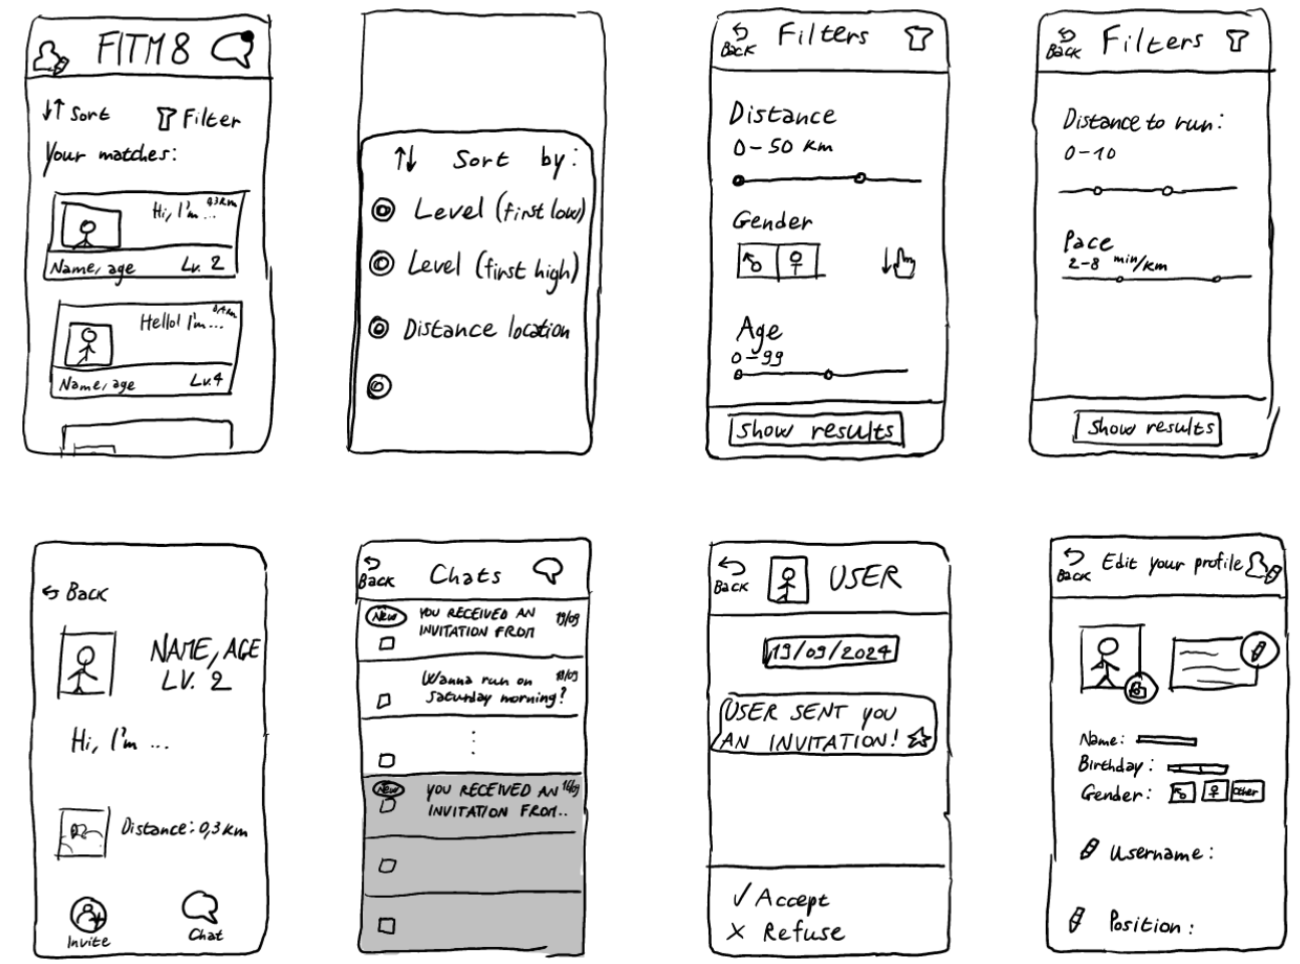 FITM8
↓↑ Sort
Filter
Your matches:
Hi, I'm...
0,3km
Name, age
Lv. 2
Hello! I'm...
Name, age
Lv. 4
↑↓ Sort by:
Level (first low)
Level (first high)
Distance location
Back
Filters
Distance
0-50 km
Gender
Age
0-99
Show results
Back
Filters
Distance to run:
0-10
Pace
2-8 min/km
Show results
Back
NAME, AGE
LV. 2
Hi, I'm ...
Distance: 0,3km
Invite
Chat
Back
Chats
New
YOU RECEIVED AN
INVITATION FROM
19/09
Wanna run on
Saturday morning?
18/09
New
YOU RECEIVED AN
INVITATION FROM..
Back
USER
19/09/2024
USER SENT YOU
AN INVITATION!
✓ Accept
✗ Refuse
Back
Edit your profile
Name:
Birthday:
Gender:
Other
Username:
Position: